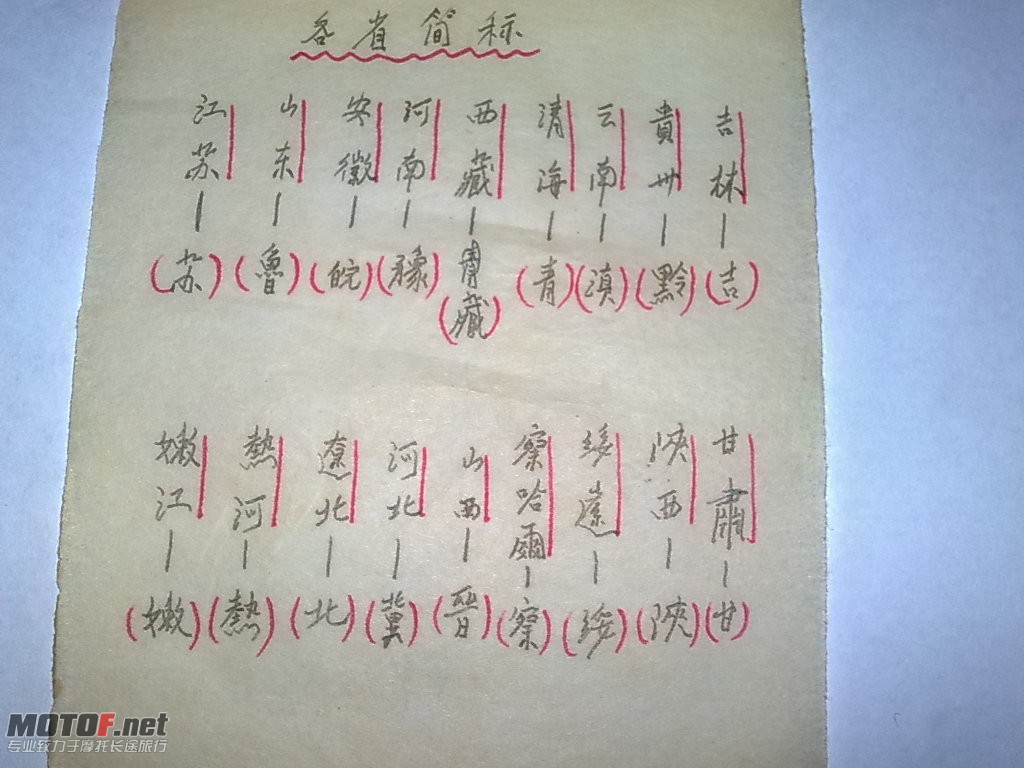 各省简称
江苏—(苏)
山东—(魯)
安徽—(皖)
河南—(豫)
西藏—(藏)
清海—(青)
云南—(滇)
貴州—(黔)
吉林—(吉)
嫩江—(嫩)
熱河—(熱)
遼北—(北)
河北—(冀)
山西—(晋)
察哈爾—(察)
綏遠—(綏)
陜西—(陜)
甘肅—(甘)
MOTOF.net
专业致力于摩托长途旅行